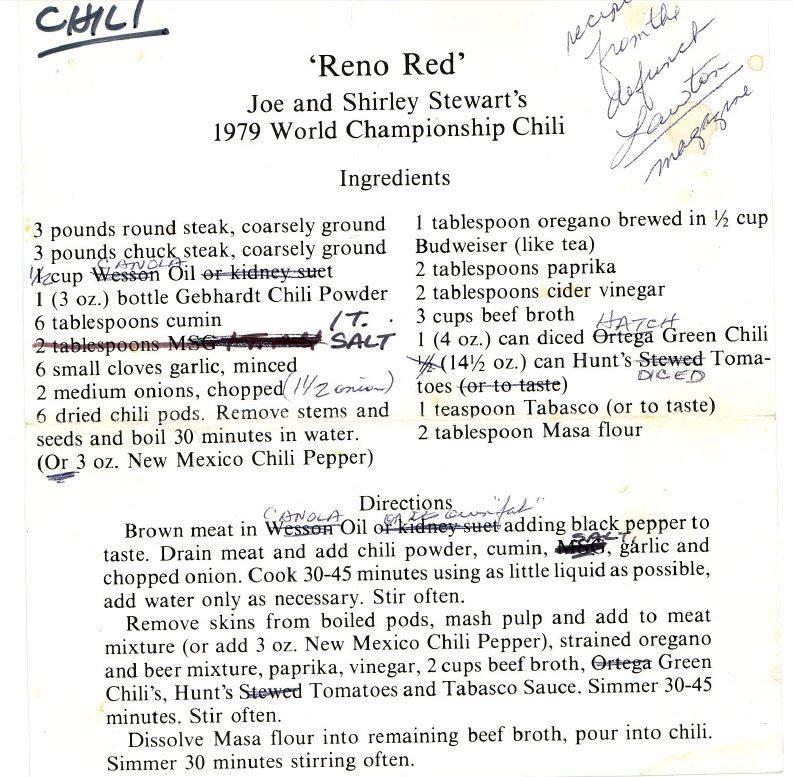 CHILI
recipe
from the
defunct
Lawton
magazine
'Reno Red'
Joe and Shirley Stewart's
1979 World Championship Chili
Ingredients
3 pounds round steak, coarsely ground
3 pounds chuck steak, coarsely ground
CANOLA
1/2 1 cup Wesson Oil or kidney suet
1 (3 oz.) bottle Gebhardt Chili Powder
6 tablespoons cumin
1 T.
2 tablespoons MSG SALT
6 small cloves garlic, minced
2 medium onions, chopped (1 1/2 onion)
6 dried chili pods. Remove stems and
seeds and boil 30 minutes in water.
(Or 3 oz. New Mexico Chili Pepper)
1 tablespoon oregano brewed in ½ cup
Budweiser (like tea)
2 tablespoons paprika
2 tablespoons cider vinegar
3 cups beef broth
HATCH
1 (4 oz.) can diced Ortega Green Chili
½ (14½ oz.) can Hunt's Stewed Toma-
DICED
toes (or to taste)
1 teaspoon Tabasco (or to taste)
2 tablespoon Masa flour
Directions
CANOLA "fat"
Brown meat in Wesson Oil or kidney suet adding black pepper to
SALT,
taste. Drain meat and add chili powder, cumin, MSG, garlic and
chopped onion. Cook 30-45 minutes using as little liquid as possible,
add water only as necessary. Stir often.
Remove skins from boiled pods, mash pulp and add to meat
mixture (or add 3 oz. New Mexico Chili Pepper), strained oregano
and beer mixture, paprika, vinegar, 2 cups beef broth, Ortega Green
Chili's, Hunt's Stewed Tomatoes and Tabasco Sauce. Simmer 30-45
minutes. Stir often.
Dissolve Masa flour into remaining beef broth, pour into chili.
Simmer 30 minutes stirring often.